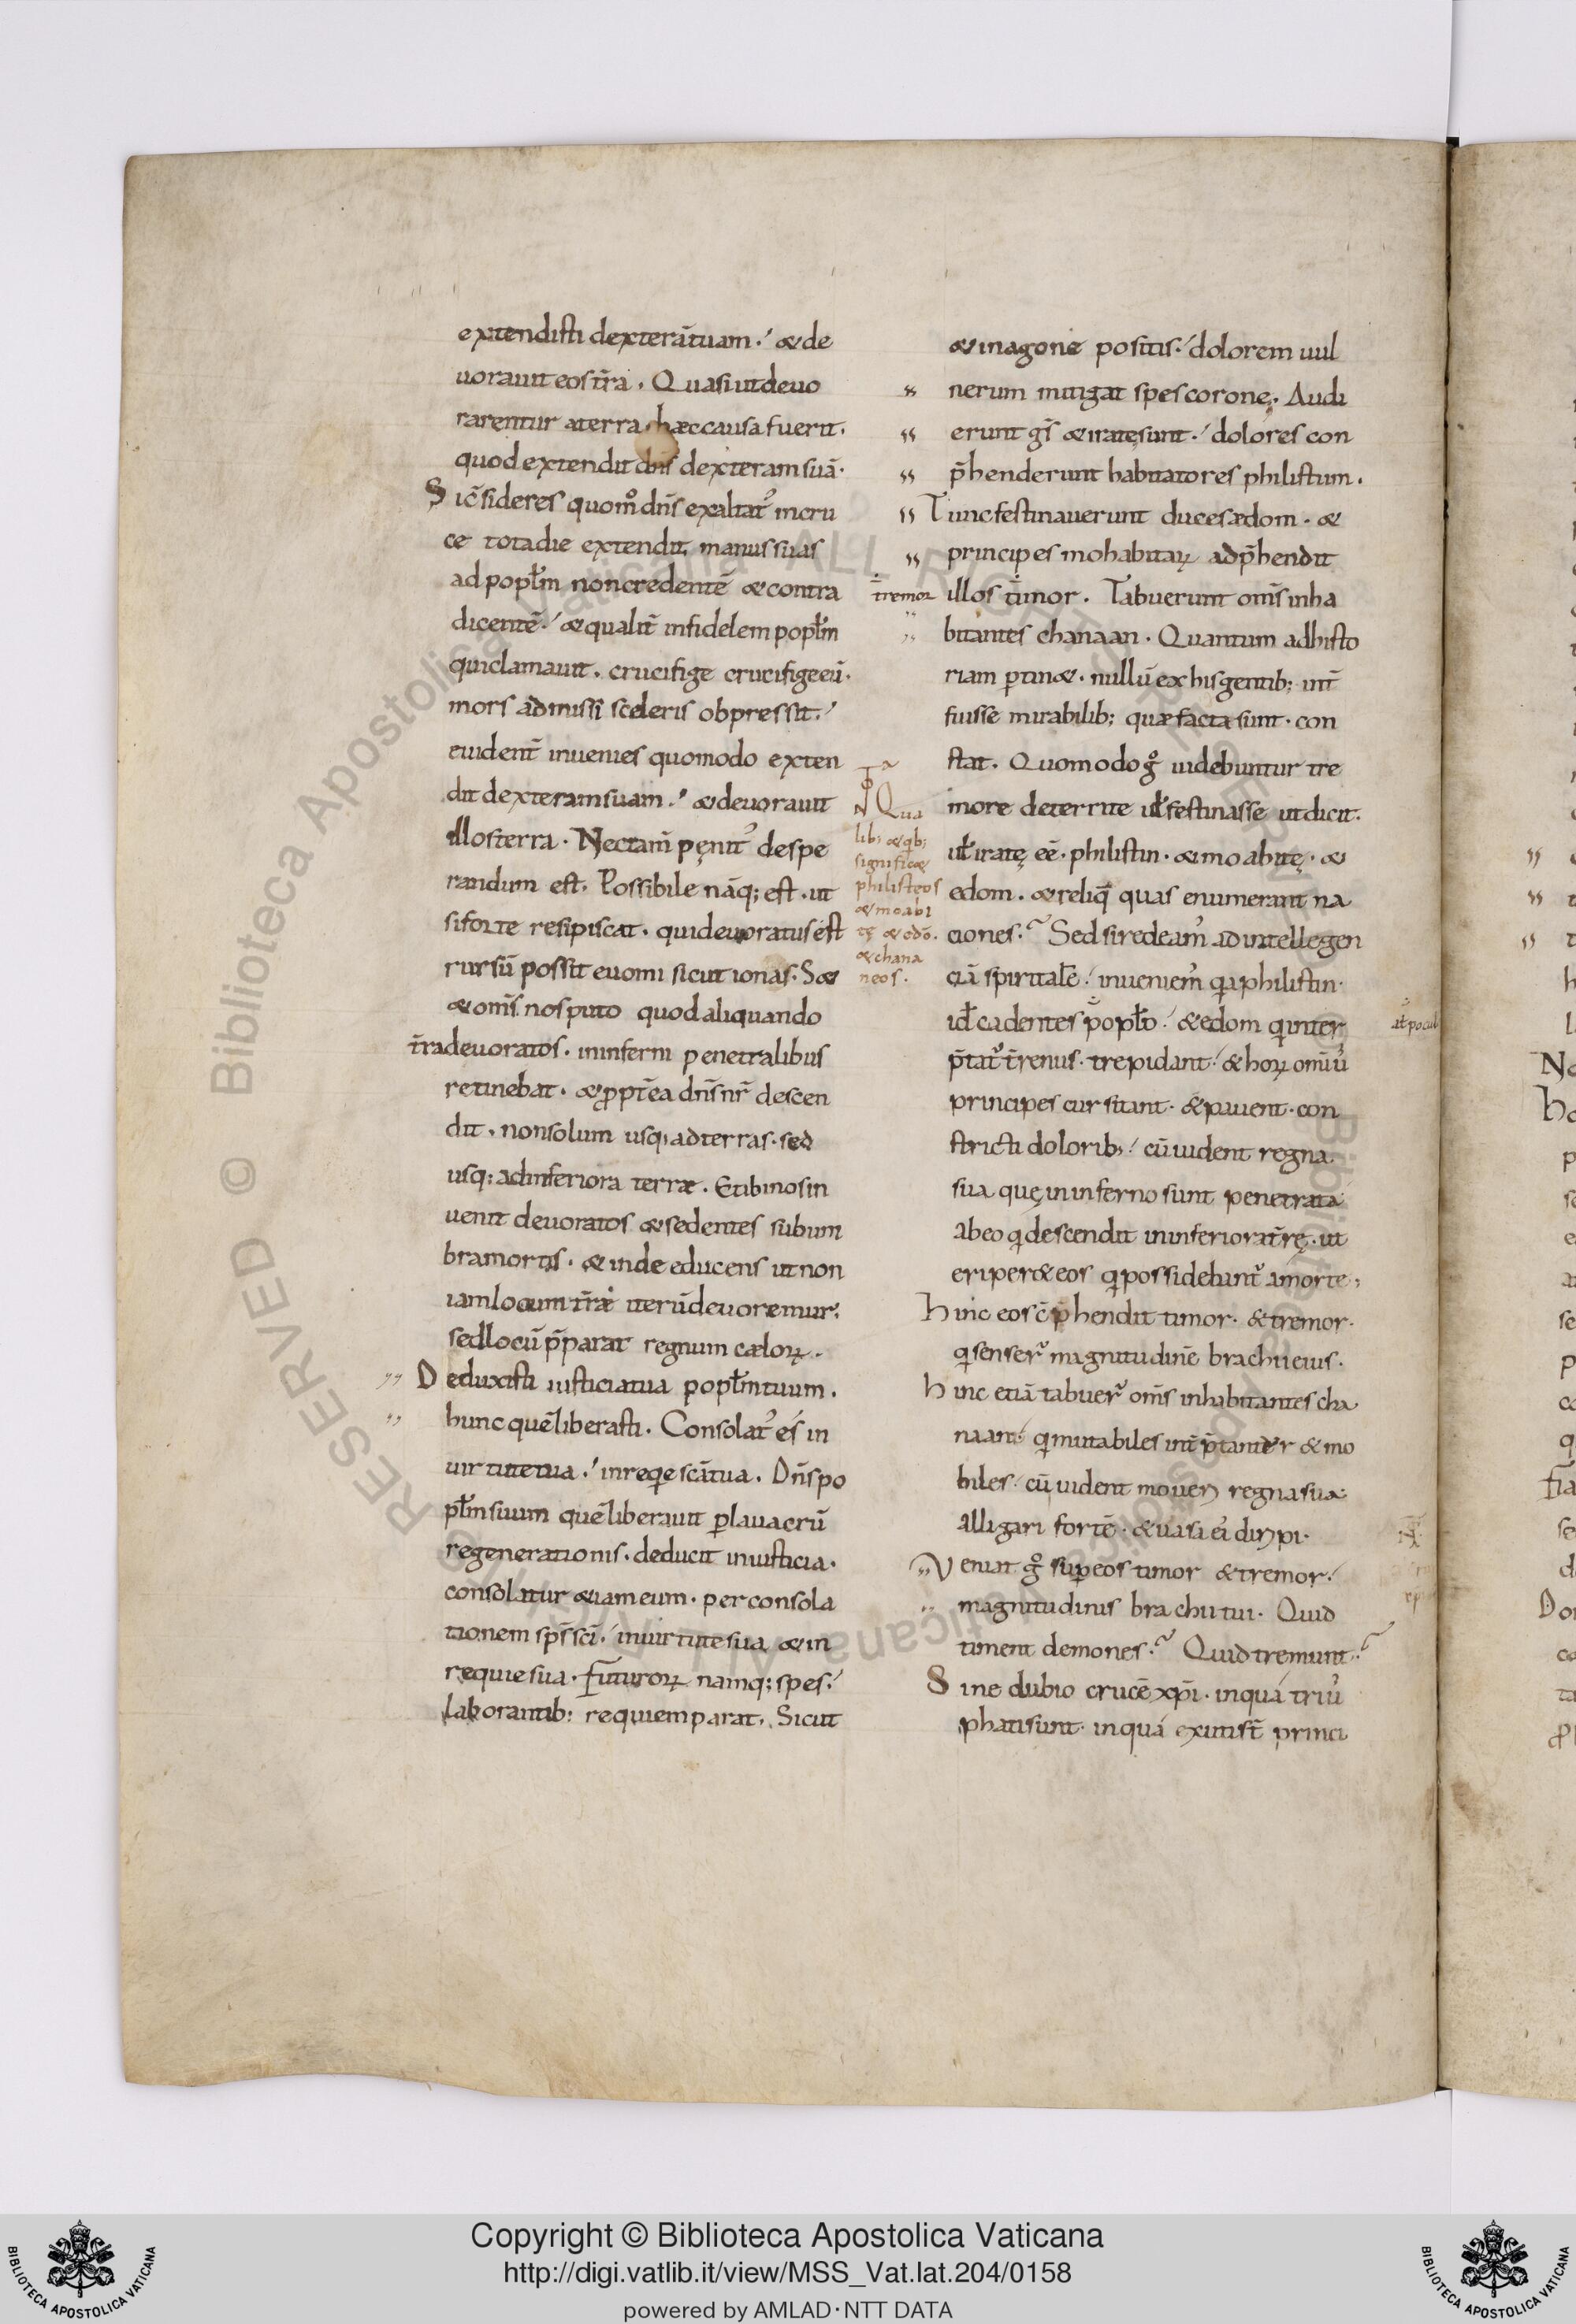 extendisti dexterātuam. & de
uorauit eos t̄ra. Quasi ut deuo
rarentur a terra hæc causa fuerit.
quod extendit dn̄s dexteram suā.
Si c̄sideres quom̊ dn̄s exaltat᾿ in cru
ce tota die extendit manus suas
ad popłm non credentē & contra
dicentē. & qualit̄ infidelem popłm
qui clamauit. crucifige crucifige eū.
mors admissi sceleris obpressit.
euident̄ inuenies quomodo exten
dit dexteram suam. & deuorauit
illos terra. Nec tam̄ penit᾿ despe
randum est. Possibile nāq; est. ut
si forte resipiscat. qui deuoratus est
rursū possit euomi sicut ionas. S&
& om̄s nos puto quod aliquando
t̄ra deuoratos. in inferni penetralibus
retinebat. & ꝓpt̄ea dn̄s nr̄ descen
dit. non solum usq; ad terras. sed
usq; ad inferiora terræ. Et ibi nos in
uenit deuoratos & sedentes sub um
bra mortis. & inde educens ut non
iam locum t̄ræ iterū deuoremur.
sed locū p̄parat regnum cæloꝝ.
" Deduxisti iusticia tua popłm tuum.
" hunc quē liberasti. Consolat᾿ es in
uirtute tua. in reqe sc̄a tua. Dn̄s po
płm suum quē liberauit ꝑ lauacrū
regenerationis. deducit in iusticia.
consolatur &iam eum. per consola
tionem sp̄s sc̄i. in uirtute sua & in
requie sua. Futuroꝝ namq; spes.
laborantib; requiem parat. Sicut
Qua
lib; & qb;
signific&
philisteos
& moabi
tę & edō.
& chana
neos.
& in agone positis. dolorem uul
" nerum mitigat spes coronę. Audi
" erunt gs̄ & iratę sunt. dolores con
" p̄henderunt habitatores philistiim.
" Tunc festinauerunt duces ædom. &
" principes mohabitaꝝ adp̄hendit
tremor illos timor. Tabuerunt om̄s inha
" bitantes chanaan. Quantum ad histo
riam ꝑtin&. nullū ex his gentib; int̄
fuisse mirabilib; quæ facta sunt. con
stat. Quomodo g̊ uidebuntur tre
more deterrite uł festinasse ut dicit.
uł iratę eē. philistin. & moabitę. &
edom. & reliq̄ quas enumerant na
ciones. Sed si redeam᾿ ad intellegen
ciā spiritalē. inueniem᾿ qa philistin.
id cadentes popło. & edom qi inter ał pocul
p̄tat᾿ t̄renus. trepidant. & hoꝝ omīū
principes cursitant. & pauent. con
stricti dolorib;. cū uident regna
sua quę in inferno sunt penetrata
ab eo qi descendit in inferiora t̄rę. ut
eriper& eos qi possidebant᾿ a morte.
Hinc eos c̄p̄hendit timor. & tremor.
qi senser᾿ magnitudinē brachii eius.
Hinc etiā tabuer᾿ om̄s inhabitantes cha
naan. qi mutabiles int̄p̄tantur & mo
biles. cū uident moueri regna sua
alligari fortē. & uasa ei᾿ diripi.
" Veniat g̊ suꝑ eos timor & tremor.
" magnitudinis brachii tui. Quid
timent demones. Quid tremunt.
Sine dubio crucē xp̄i. in qua triū
phati sunt. in qua exuti st̄ princi